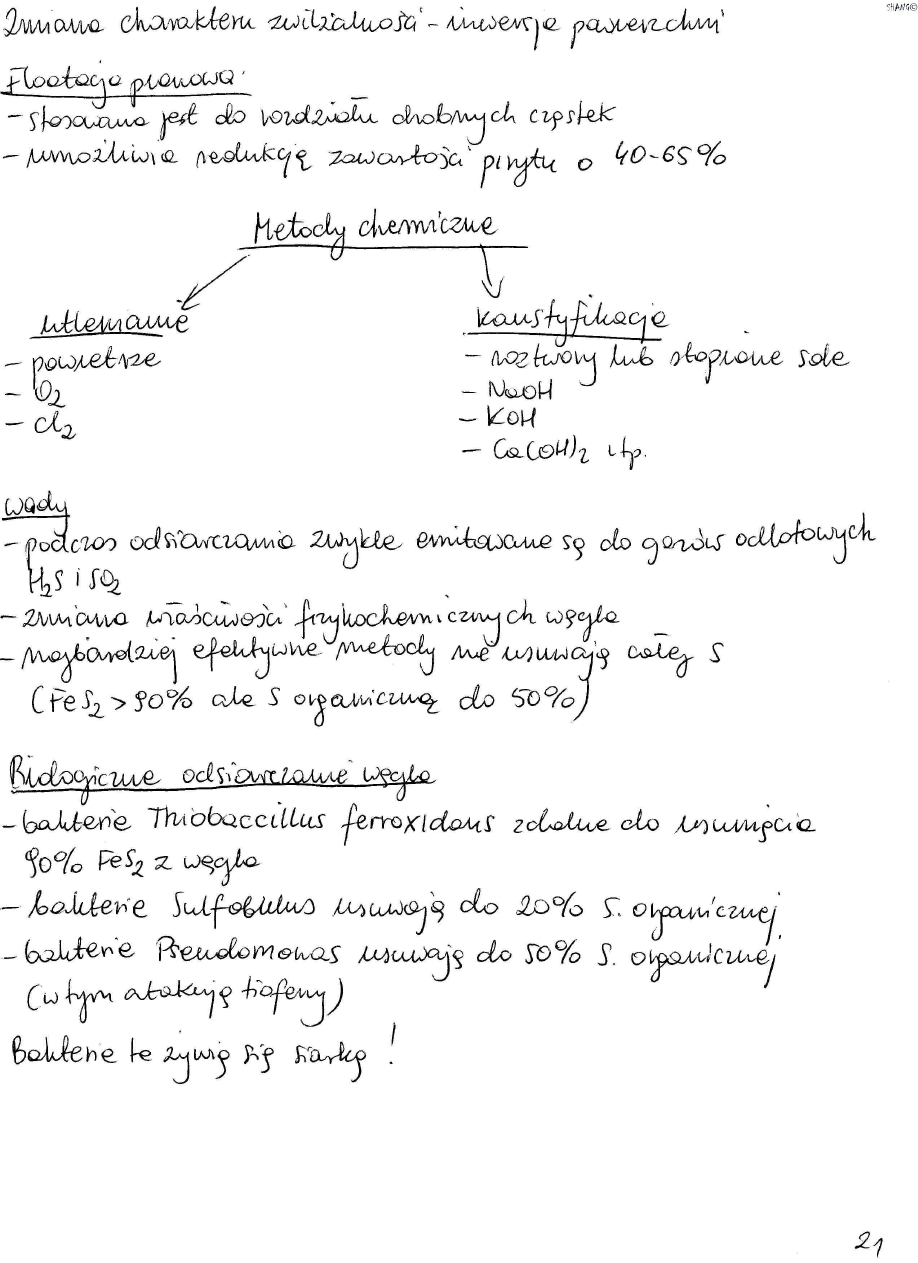 SHANG©
Zmiana charakteru zwilżalności - inwersja powierzchni
Flotacja pianowa:
- stosowana jest do rozdziału drobnych cząstek
- umożliwia redukcję zawartości pirytu o 40-65%
Metody chemiczne
utlenianie
- powietrze
- O2
- Cl2
kaustyfikacja
- roztwory lub stopione sole
- NaOH
- KOH
- Ca(OH)2 itp.
wady
- podczas odsiarczania zwykle emitowane są do gazów odlotowych
H2S i SO2
- zmiana właściwości fizykochemicznych węgla
- najbardziej efektywne metody nie usuwają całej S
(FeS2 > 90% ale S organiczną do 50%)
Biologiczne odsiarczanie węgla
- bakterie Thiobaccillus ferroxidans zdolne do usunięcia
90% FeS2 z węgla
- bakterie Sulfobulus usuwają do 20% S. organicznej
- bakterie Pseudomonas usuwają do 50% S. organicznej
(w tym atakują tiofeny)
Bakterie te żywią się siarką!
21